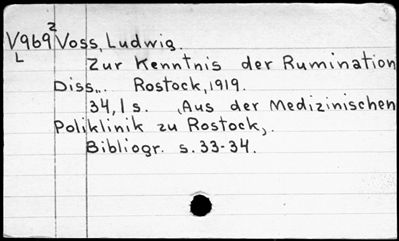 V969² Voss, Ludwig.
L
Zur Kenntnis der Rumination
Diss... Rostock, 1919.
34,1 s. (Aus der Medizinischen
Poliklinik zu Rostock).
Bibliogr. s. 33-34.